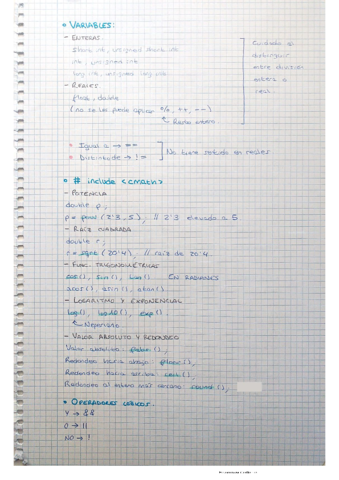 • VARIABLES:
- ENTERAS
short int, unsigned short int
int, unsigned int
long int, unsigned long int
- REALES
float, double
(no se les puede aplicar %, ++, --)
↳ Resto entero
Cuidado al
distinguir
entre división
entera o
real.
• Igual a → ==
• Distinto de → !=
No tiene sentido en reales
• # include <cmath>
- POTENCIA
double p;
p = pow (2'3, 5); // 2'3 elevado a 5
- RAÍZ CUADRADA
double r;
r = sqrt (20'4); // raíz de 20'4
- FUNC. TRIGONOMÉTRICAS
cos(), sin(), tan() EN RADIANES
acos(), asin(), atan().
- LOGARITMO Y EXPONENCIAL
log(), log10(), exp().
↳ Neperiano
- VALOR ABSOLUTO Y REDONDEO
Valor absoluto: fabs();
Redondeo hacia abajo: floor();
Redondeo hacia arriba: ceil();
Redondeo al entero más cercano: round();
• OPERADORES LÓGICOS:
Y → &&
O → ||
NO → !